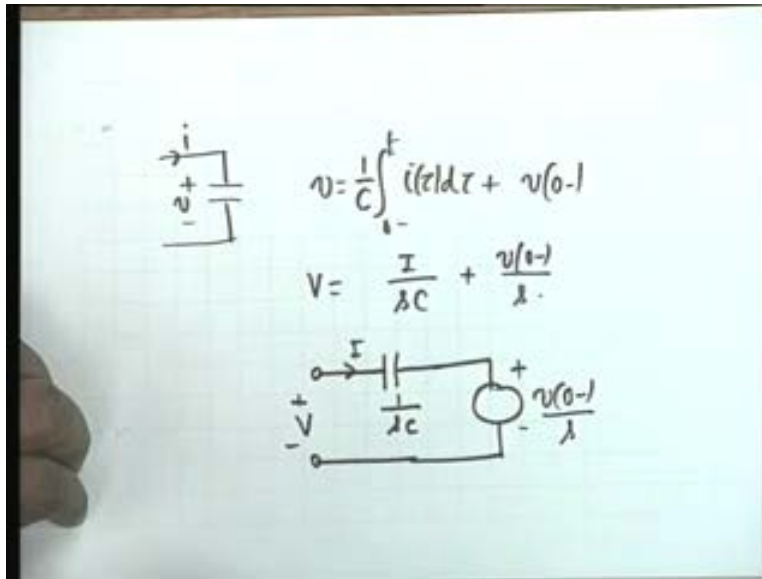 i
+
v
-
v = 1/C ∫_{0-}^{t} i(τ)dτ + v(0-)
V = I/sC + v(0-)/s
I
+
V
-
1/sC
+
-
v(0-)/s